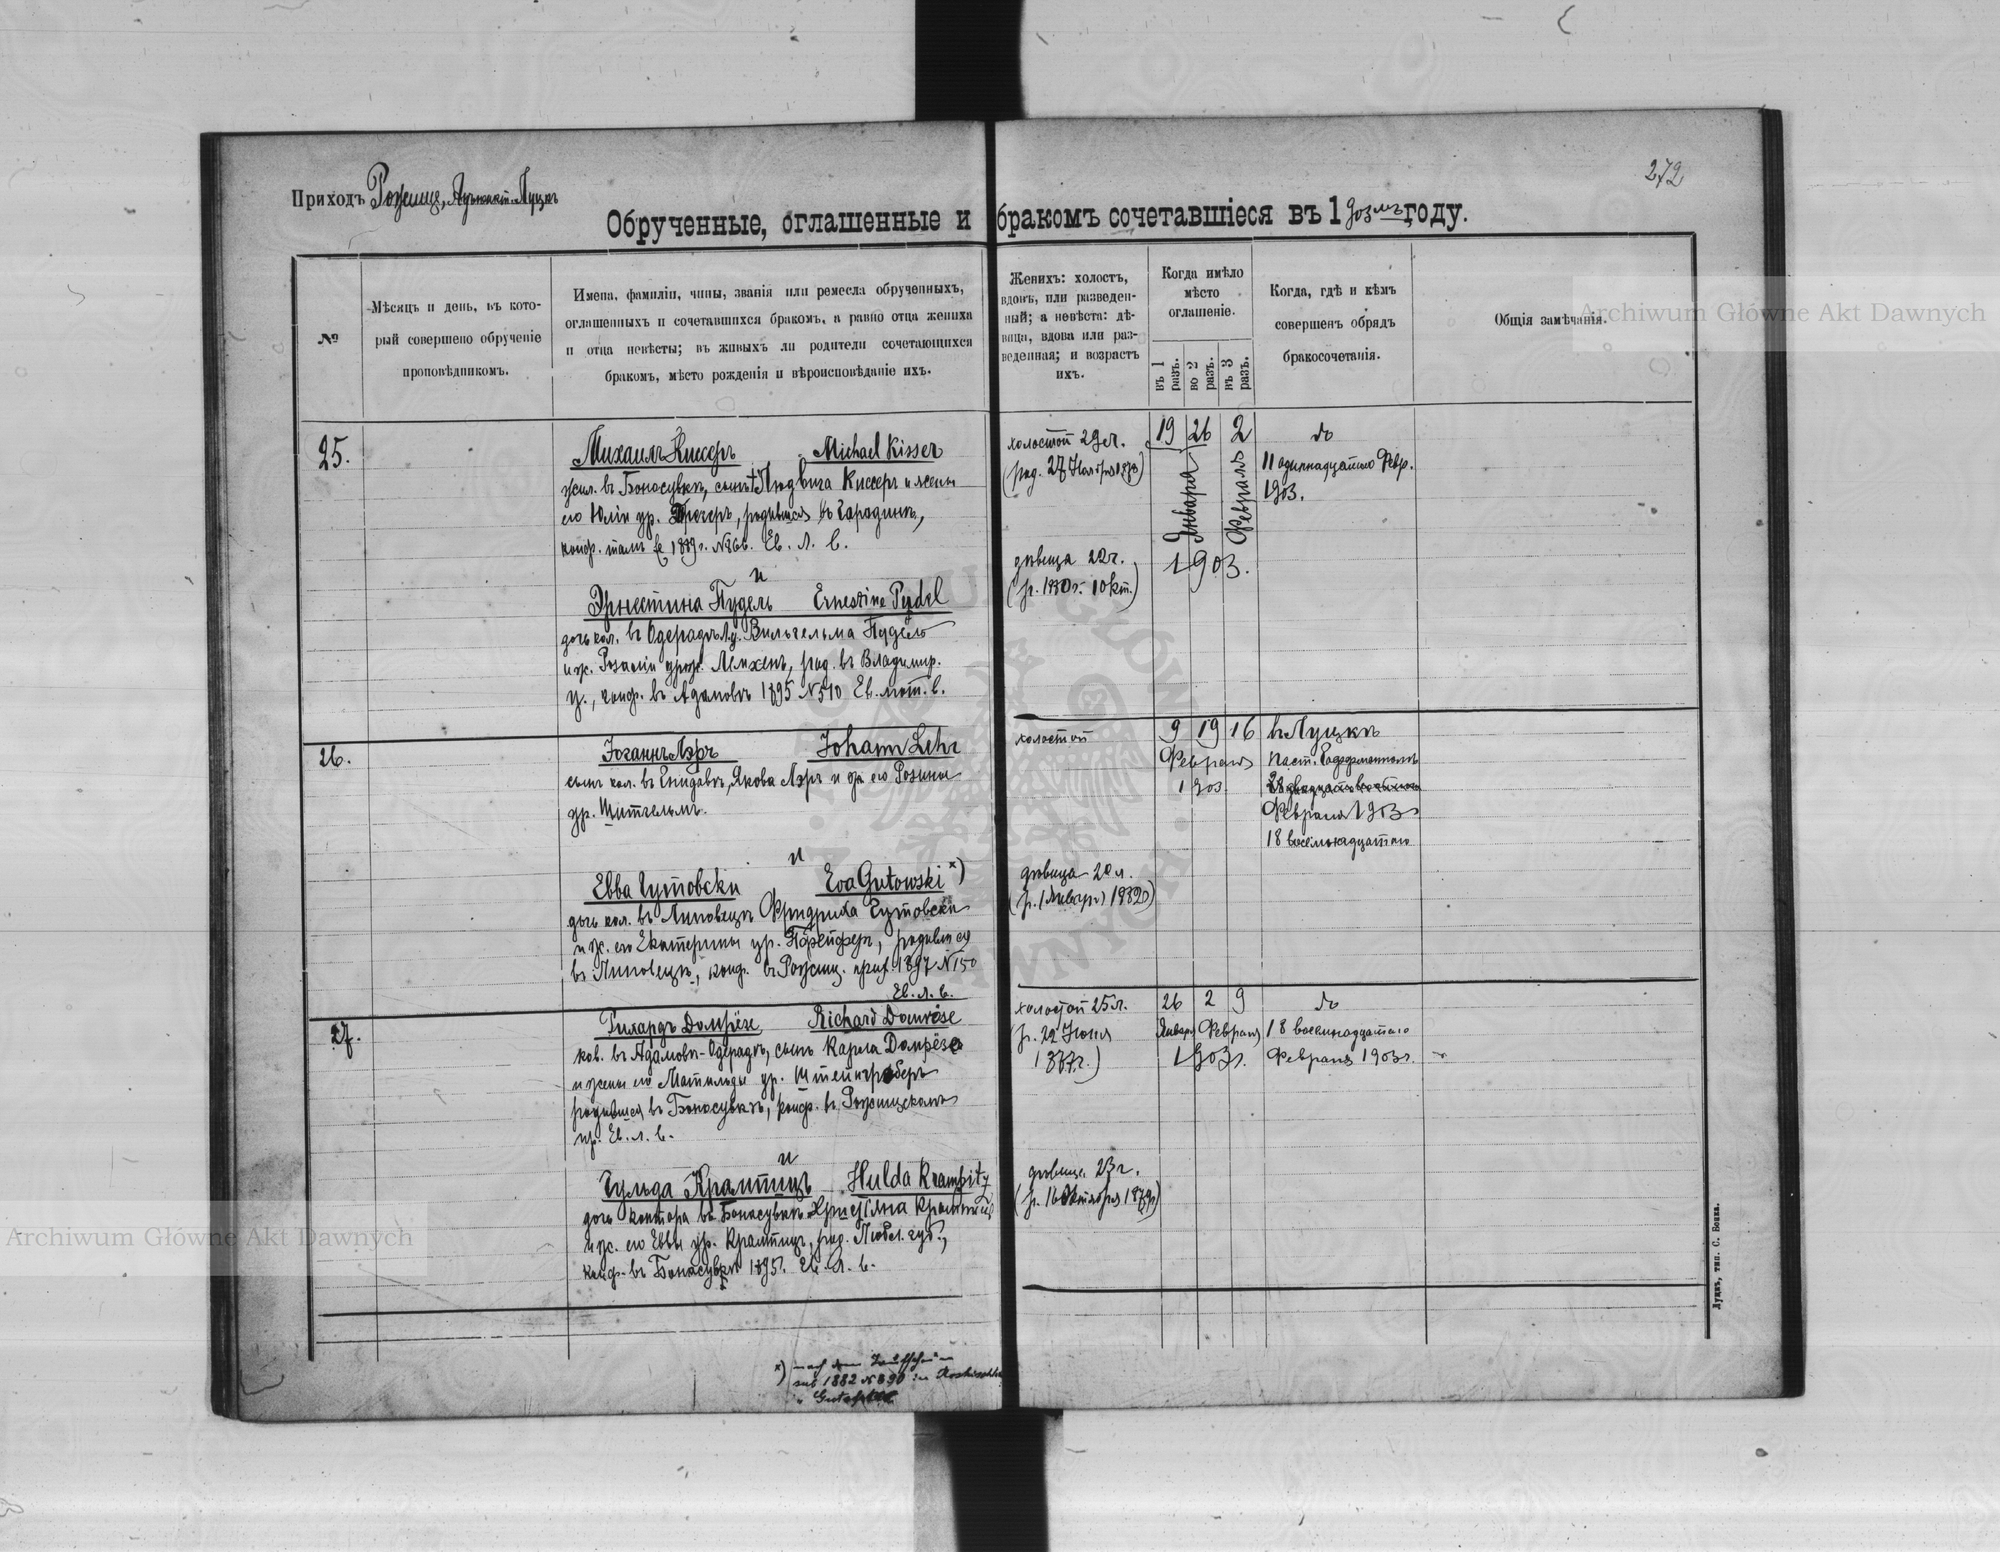 272
Приходъ Рожище, Луцкъ
Обрученные, оглашенные и бракомъ сочетавшіеся въ 1903мъ году.
№
Мѣсяцъ и день, въ кото-
рый совершено обрученіе
проповѣдникомъ.
Имена, фамиліи, чины, званія или ремесла обрученныхъ,
оглашенныхъ и сочетавшихся бракомъ, а равно отца жениха
и отца невѣсты; въ живыхъ ли родители сочетающихся
бракомъ, мѣсто рожденія и вѣроисповѣданіе ихъ.
Женихъ: холостъ,
вдовъ, или разведен-
ный; а невѣста: дѣ-
вица, вдова или раз-
веденная; и возрастъ
ихъ.
Когда имѣло
мѣсто
оглашеніе.
въ 1 разъ.
во 2 разъ.
въ 3 разъ.
Когда, гдѣ и кѣмъ
совершенъ обрядъ
бракосочетанія.
Общія замѣчанія.
25.
Михаилъ Киссеръ Michael Kisser
жил. въ Боносувкѣ, сынъ † Людвига Киссеръ и жены
его Юліи ур. родившійся въ
конф. тамъ же 1889г. №866. Ев. Л. в.
и
Эрнестина Пудель Ernestine Pudel
дочь кол. въ Одерадахъ Лу. Вильгельма Пудель
и ж. Розаліи урож. Лемхенъ, род. въ Владимир.
у., конф. въ Адамовкѣ 1895 №510 Ев. лют. в.
холостой 29л.
(род. 27 Ноября 1873)
дѣвица 22г.
(р. 1880г. 10 Окт.)
19 26 2
Января Февраля
1903.
до
11 одиннадцатаго Февр.
1903.
26.
Іоганнъ Лэръ Johann Lehr
сынъ кол. въ Якова Лэръ и ж. его Розины
ур. Шитгельмъ.
и
Евва Гутовски Eva Gutowski ×)
дочь кол. въ Линовецкъ Фридриха Гутовски
и ж. его Екатерины ур. Пфейферъ, родивш ся
въ Линовецкъ, конф. въ Рожищ. прих. 1897 №150
Ев. л. в.
холостой
дѣвица 20л.
(р. 1 Января 1882)
9 19 16
Февраля
1903
въ Луцкѣ
паст.
Февраля 1903
18 восемнадцатаго
27.
Рихардъ Домрёзе Richard Domröse
кол. въ Адамовкѣ-Одерадѣ, сынъ Карла Домрёзе
и жены его Матильды ур. Штейнгреберъ
родившійся въ Боносувкѣ, конф. въ Рожищскомъ
пр. Ев. л. в.
и
Гульда Крампицъ Hulda Krampitz
дочь кантора въ Боносувкѣ Христіана Крампицъ
и ж. его Еввы ур. Крампицъ, род. Любл. губ.,
конф. въ Боносувкѣ 1895г. Ев. Л. в.
холостой 25л.
(р. 22 Іюня
1877г.)
дѣвица 23г.
(р. 16 Октября 1879г)
26 2 9
Январ Февраля
1903г.
до
18 восемнадцатаго
Февраля 1903г.
×) nach dem Taufschein
sub 1882 №890 in Roshischtsche
Луцкъ, тип. С. Бонка.
Archiwum Główne Akt Dawnych
Archiwum Główne Akt Dawnych